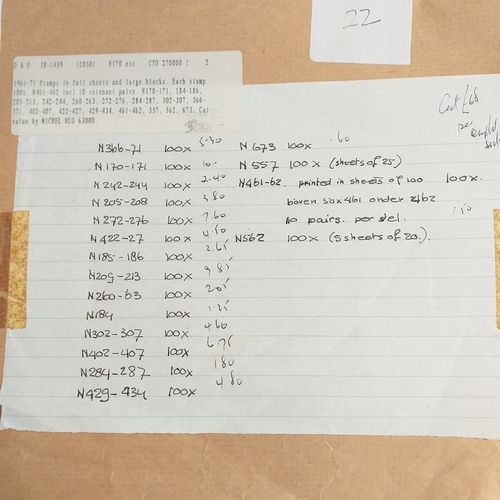 22
D & O 38-1459 (2050) N170 etc CTO 270000 1 2
1961-71 Stamps in full sheets and large blocks. Each stamp
100x. N461-462 incl 10 setenant pairs. N170-171, 184-186,
205-213, 242-244, 260-263, 272-276, 284-287, 302-307, 366-
371, 402-407, 422-427, 429-434, 461-462, 557, 562, 673. Cat
value by MICHEL NLG 63000.
Cat £68
per
N366-71 100x 5-30 N673 100x -60
N170-171 100x 10- N557 100x (sheets of 25)
N242-244 100x 2.40 N461-62. printed in sheets of 100 100x.
N205-208 100x 3.80 boven 50x 461 onder 462
N272-276 100x 7.60 10 pairs. per vel.
N422-27 100x 4.50 N562 100x (5 sheets of 20.)
N185-186 100x 2.65
N209-213 100x 9.85
N260-63 100x 205
N184 100x 1.25
N302-307 100x 4.60
N402-407 100x 6.75
N284-287 100x 1.80
N429-434 100x 4.80